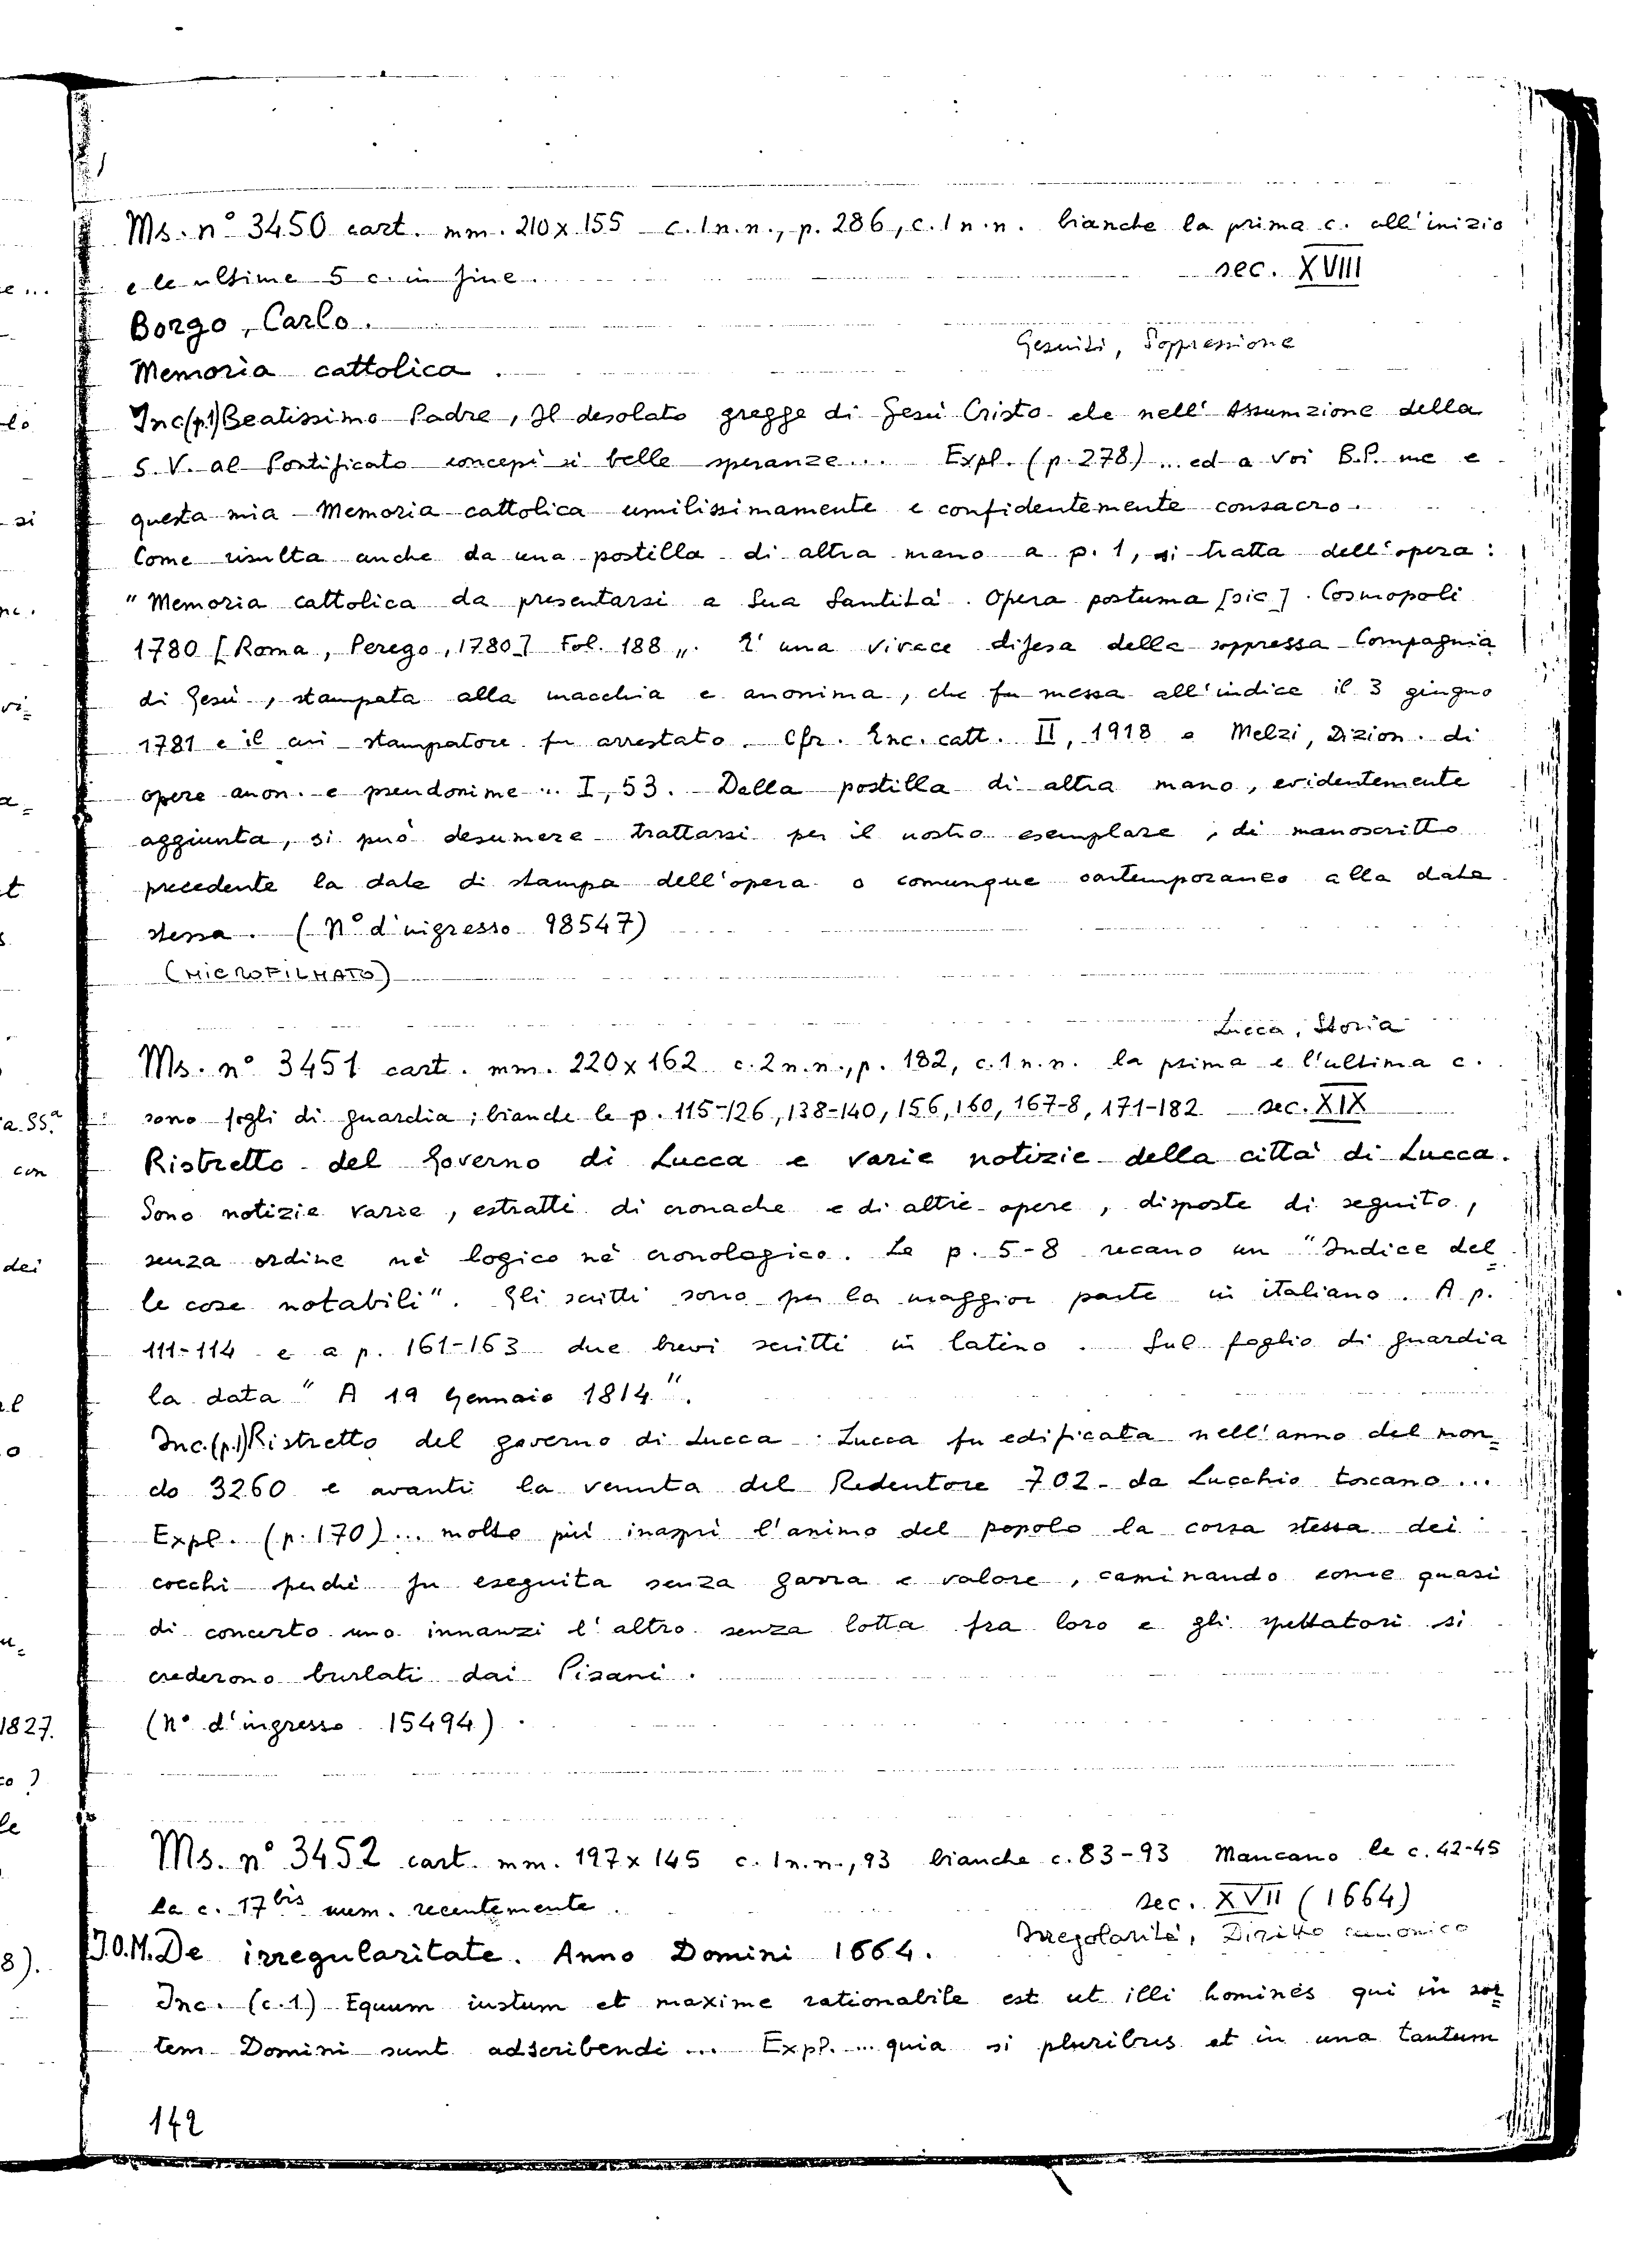 Ms. n° 3450 cart. mm. 210 x 155 c. 1 n.n., p. 286, c. 1 n.n. bianche la prima c. all'inizio
e le ultime 5 c. in fine. sec. XVIII
Borgo, Carlo.
Gesuiti, Soppressione
Memoria cattolica.
Inc.(p.1) Beatissimo Padre, Il desolato gregge di Gesù Cristo che nell'Assunzione della
S. V. al Pontificato concepì sì belle speranze... Expl. (p. 278) ... ed a Voi B.P. me e
questa mia Memoria cattolica umilissimamente e confidentemente consacro.
Come risulta anche da una postilla di altra mano a p. 1, si tratta dell'opera:
"Memoria cattolica da presentarsi a Sua Santità. Opera postuma [sic]. Cosmopoli
1780 [Roma, Perego, 1780] Fol. 188". È una vivace difesa della soppressa Compagnia
di Gesù, stampata alla macchia e anonima, che fu messa all'indice il 3 giugno
1781 e il cui stampatore fu arrestato. Cfr. Enc. catt. II, 1918 e Melzi, Dizion. di
opere anon. e pseudonime... I, 53. Dalla postilla di altra mano, evidentemente
aggiunta, si può desumere trattarsi per il nostro esemplare, di manoscritto
precedente la data di stampa dell'opera o comunque contemporaneo alla data
stessa. (N° d'ingresso 98547)
(MICROFILMATO)
Lucca, Storia
Ms. n° 3451 cart. mm. 220 x 162 c. 2 n.n., p. 182, c. 1 n.n. la prima e l'ultima c.
sono fogli di guardia; bianche le p. 115-126, 138-140, 156, 160, 167-8, 171-182 sec. XIX
Ristretto del Governo di Lucca e varie notizie della città di Lucca.
Sono notizie varie, estratti di cronache e di altre opere, disposte di seguito,
senza ordine né logico né cronologico. Le p. 5-8 recano un "Indice del=
le cose notabili". Gli scritti sono per la maggior parte in italiano. A p.
111-114 e a p. 161-163 due brevi scritti in latino. Sul foglio di guardia
la data "A 19 Gennaio 1814".
Inc.(p.1) Ristretto del governo di Lucca. Lucca fu edificata nell'anno del mon=
do 3260 e avanti la venuta del Redentore 702 da Lucchio toscano...
Expl. (p. 170) ... molto più inasprì l'animo del popolo la corsa stessa dei
cocchi perché fu eseguita senza garra e valore, caminando come quasi
di concerto uno innanzi l'altro senza lotta fra loro e gli spettatori si
crederono burlati dai Pisani.
(N° d'ingresso 15494).
Ms. n° 3452 cart. mm. 197 x 145 c. 1 n.n., 93 bianche c. 83-93 Mancano le c. 42-45
la c. 17 bis num. recentemente. sec. XVII (1664)
Irregolarità, Diritto canonico
J.O.M. De irregularitate. Anno Domini 1664.
Inc. (c.1) Equum iustum et maxime rationabile est ut illi homines qui in sor=
tem Domini sunt adscribendi... Expl. ... quia si pluribus et in una tantum
142